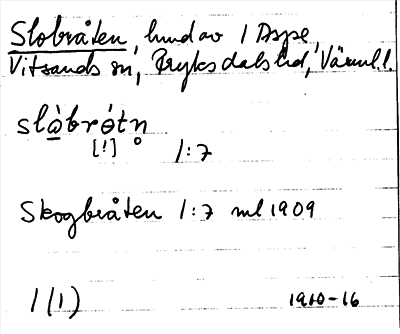 Slobråten, hmd av 1 Aspe,
Vitsands sn, Fryksdals hd, Värml.l.
slòbrótn̥
[!]
1:7
Skogbråten 1:7 ml 1909
1(1) 1910-16